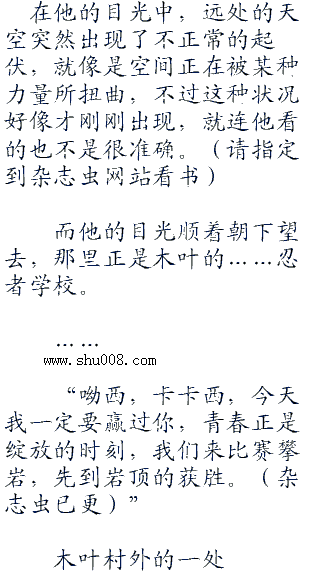 在他的目光中，远处的天
空突然出现了不正常的起
伏，就像是空间正在被某种
力量所扭曲，不过这种状况
好像才刚刚出现，就连他看
的也不是很准确。（请指定
到杂志虫网站看书）
而他的目光顺着朝下望
去，那里正是木叶的……忍
者学校。
……
www.shu008.com
“呦西，卡卡西，今天
我一定要赢过你，青春正是
绽放的时刻，我们来比赛攀
岩，先到岩顶的获胜。（杂
志虫已更）”
木叶村外的一处